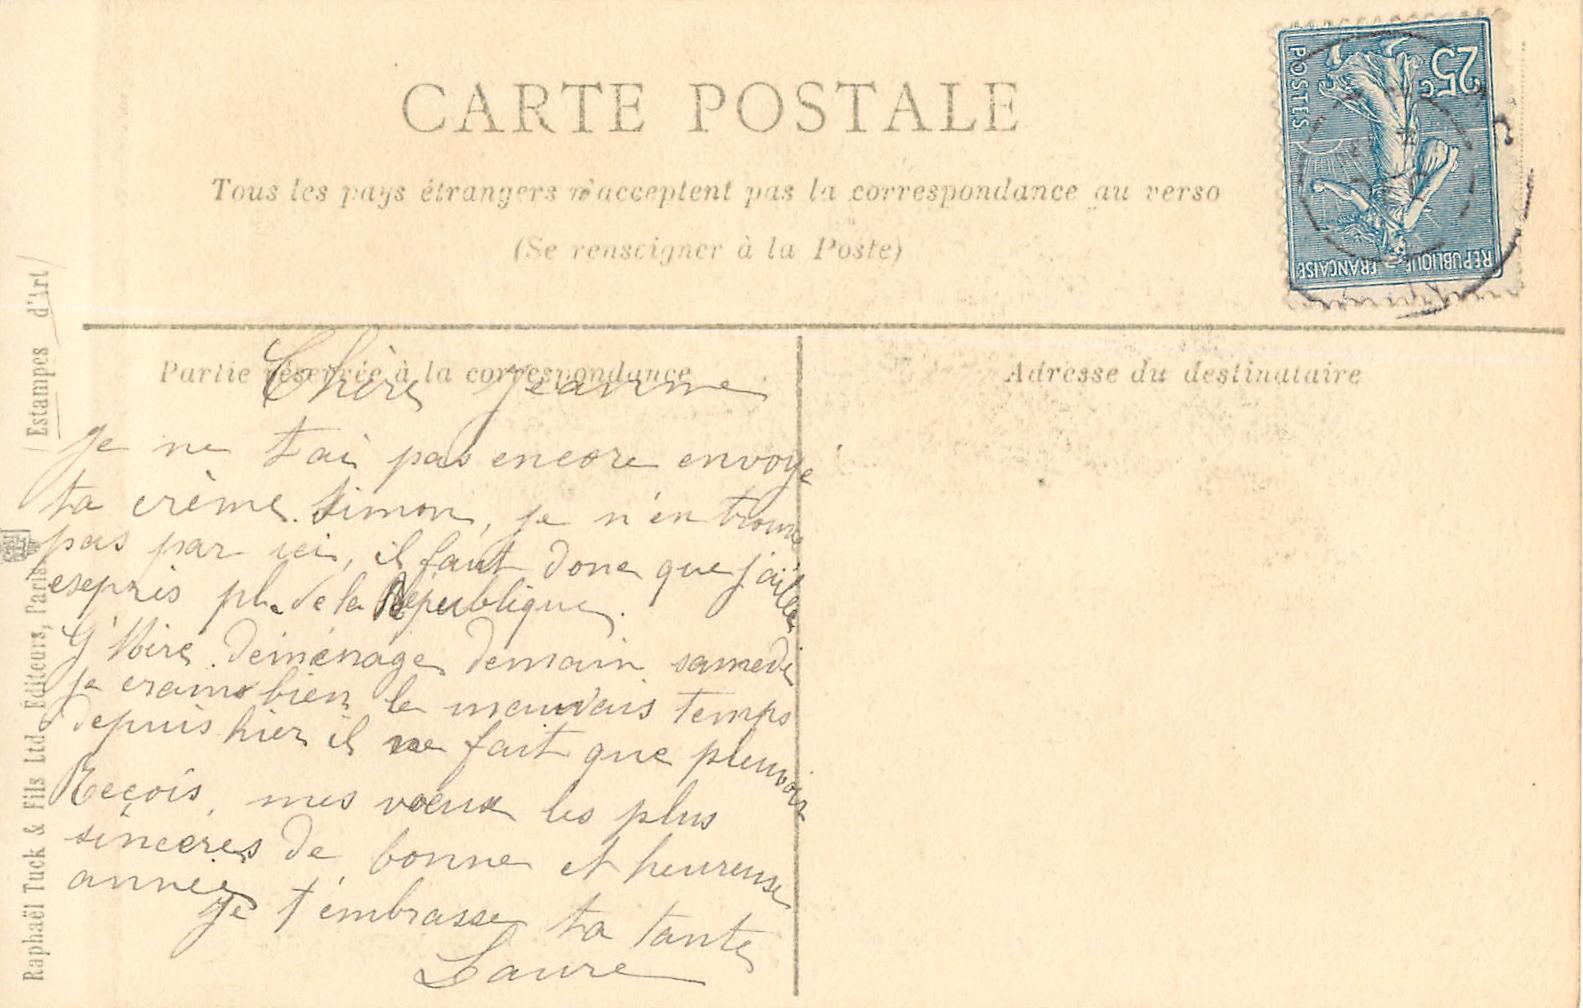 CARTE POSTALE
Tous les pays étrangers n'acceptent pas la correspondance au verso
(Se renseigner à la Poste)
25c
POSTES
REPUBLIQUE FRANÇAISE
Partie réservée à la correspondance
Adresse du destinataire
Chère Jeanne
Je ne t'ai pas encore envoyé
ta crème Simon, je n'en trouve
pas par ici, il faut donc que j'aille
exepris pl. de la République.
déménage demain samedi
je crains bien le mauvais temps
depuis hier il ne fait que pleuvoir
Reçois mes vœux les plus
sincères de bonne et heureuse
année
Je t'embrasse ta tante
Laure
Raphaël Tuck & Fils Ltd, Editeurs, Paris
Estampes d'Art